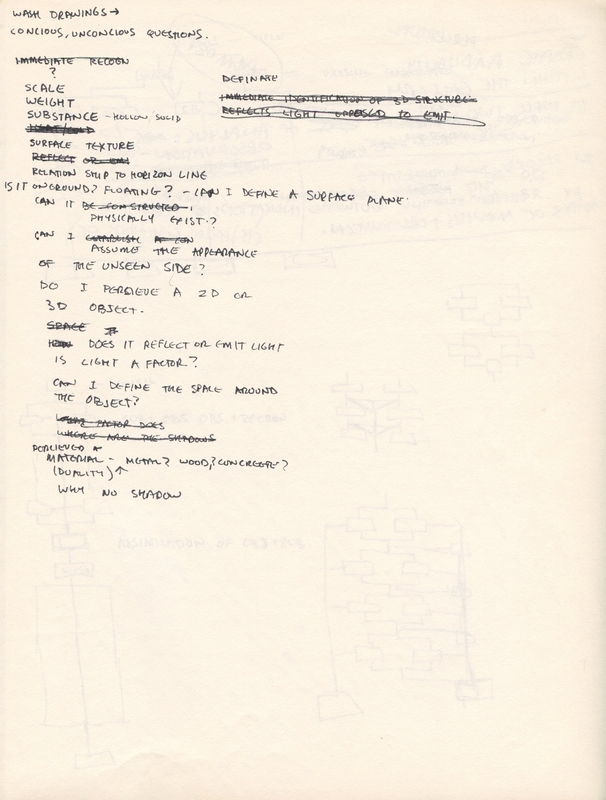 WASH DRAWINGS →
CONCIOUS, UNCONCIOUS QUESTIONS.
IMMEDIATE RECOGN
?
SCALE
WEIGHT
SUBSTANCE - HOLLOW, SOLID
DEFINATE
IMMEDIATE IDENTIFICATION OF 3D STRUCTURE
REFLECTS LIGHT OPPOSED TO EMIT
SURFACE TEXTURE
REFLECT OR EMI
RELATION SHIP TO HORIZON LINE
IS IT ON GROUND? FLOATING? - CAN I DEFINE A SURFACE PLANE.
CAN IT BE CONSTRUCTED
PHYSICALLY EXIST?
CAN I ESTABLISH A CON
ASSUME THE APPEARANCE
OF THE UNSEEN SIDE?
DO I PERCIEVE A 2D OR
3D OBJECT.
SPACE
DOES IT REFLECT OR EMIT LIGHT
IS LIGHT A FACTOR?
CAN I DEFINE THE SPACE AROUND
THE OBJECT?
WHAT FACTOR DOES
WHERE ARE THE SHADOWS
PERCIEVED
MATERIAL - METAL? WOOD? CONCREETE?
(DUALITY) ↑
WHY NO SHADOW